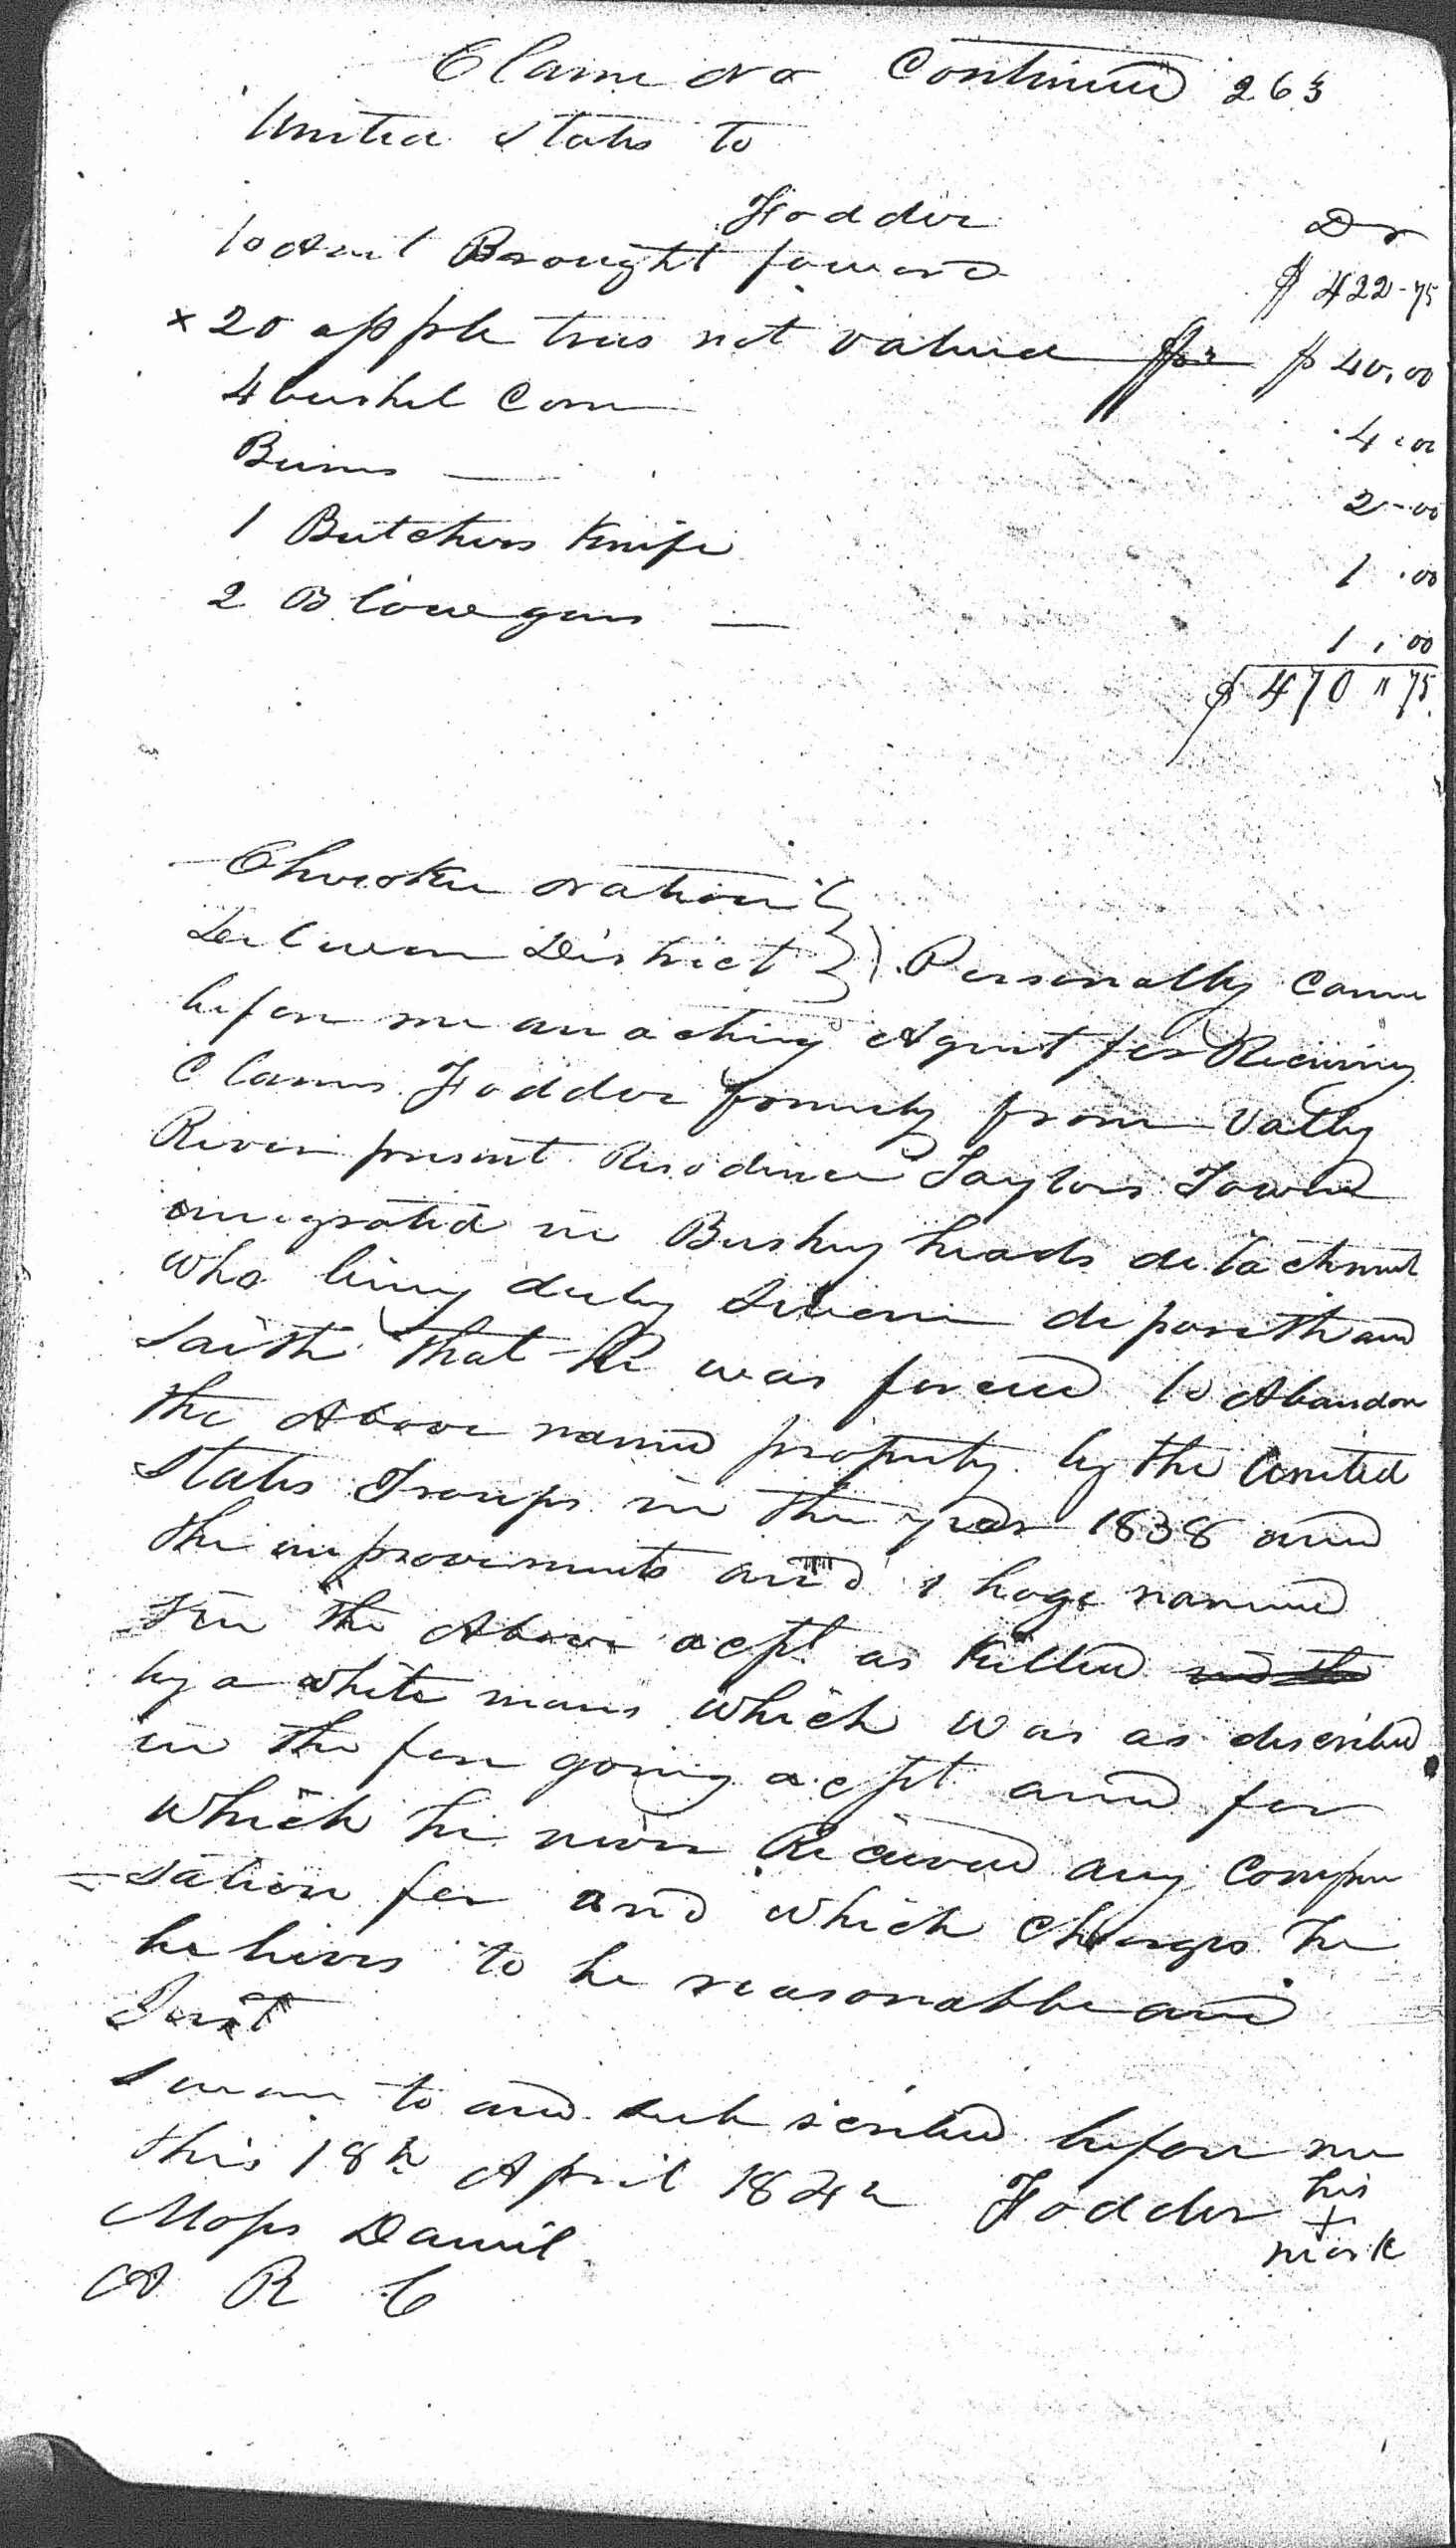 Claim No Continued 263
United States to
Fodder Dr
To Amt Brought forward $422-75
x 20 apple trees not valued $40.00
4 bushel Corn 4.00
Beans — 2-00
1 Butchers Knife 1.00
2 Blowguns — 1.00
$470"75
Cherokee Nation
Delaware District Personally came
before me an acting Agent for Receiving
Claims Fodder formerly from Vally
River present Residence Taylors Town
emigrated in Bushyheads detachment
who being duly Sworn deposeth and
Saith that he was forced to Abandon
the Above named property by the United
States Troops in the year 1838 and
the improvements and 1 hog named
in the Above acpt as killed
by a white man which was as described
in the foregoing acpt and for
which he never Received any Compen
=sation for and which Charges he
believes to be reasonable and
Just
Sworn to and subscribed before me
this 18th April 1842 Fodder his
x
mark
Moses Daniel
A R C